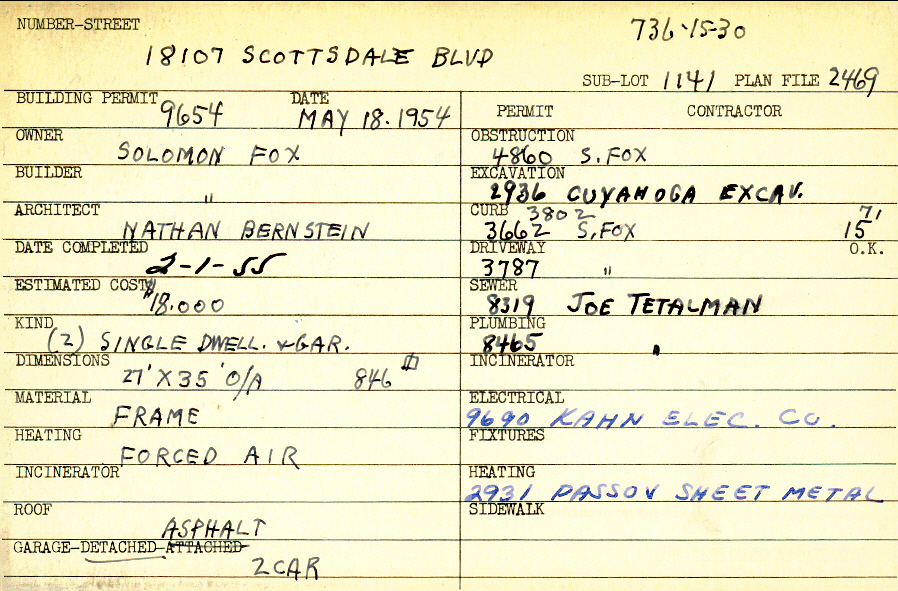 NUMBER-STREET 736-15-30
18107 SCOTTSDALE BLVD
SUB-LOT 1141 PLAN FILE 2469
BUILDING PERMIT 9654 DATE MAY 18.1954
OWNER SOLOMON FOX
BUILDER "
ARCHITECT NATHAN BERNSTEIN
DATE COMPLETED 2-1-55
ESTIMATED COST $18.000
KIND (2) SINGLE DWELL. & GAR.
DIMENSIONS 27' X 35' O/A 846
MATERIAL FRAME
HEATING FORCED AIR
INCINERATOR
ROOF ASPHALT
GARAGE-DETACHED-ATTACHED 2 CAR
PERMIT CONTRACTOR
OBSTRUCTION 4860 S. FOX
EXCAVATION 2936 CUYAHOGA EXCAV.
CURB 3802 71
3662 S. FOX 15
DRIVEWAY O.K.
3787 "
SEWER 8319 JOE TETALMAN
PLUMBING 8465 "
INCINERATOR
ELECTRICAL 9690 KAHN ELEC. CO.
FIXTURES
HEATING 2931 PASSOV SHEET METAL
SIDEWALK